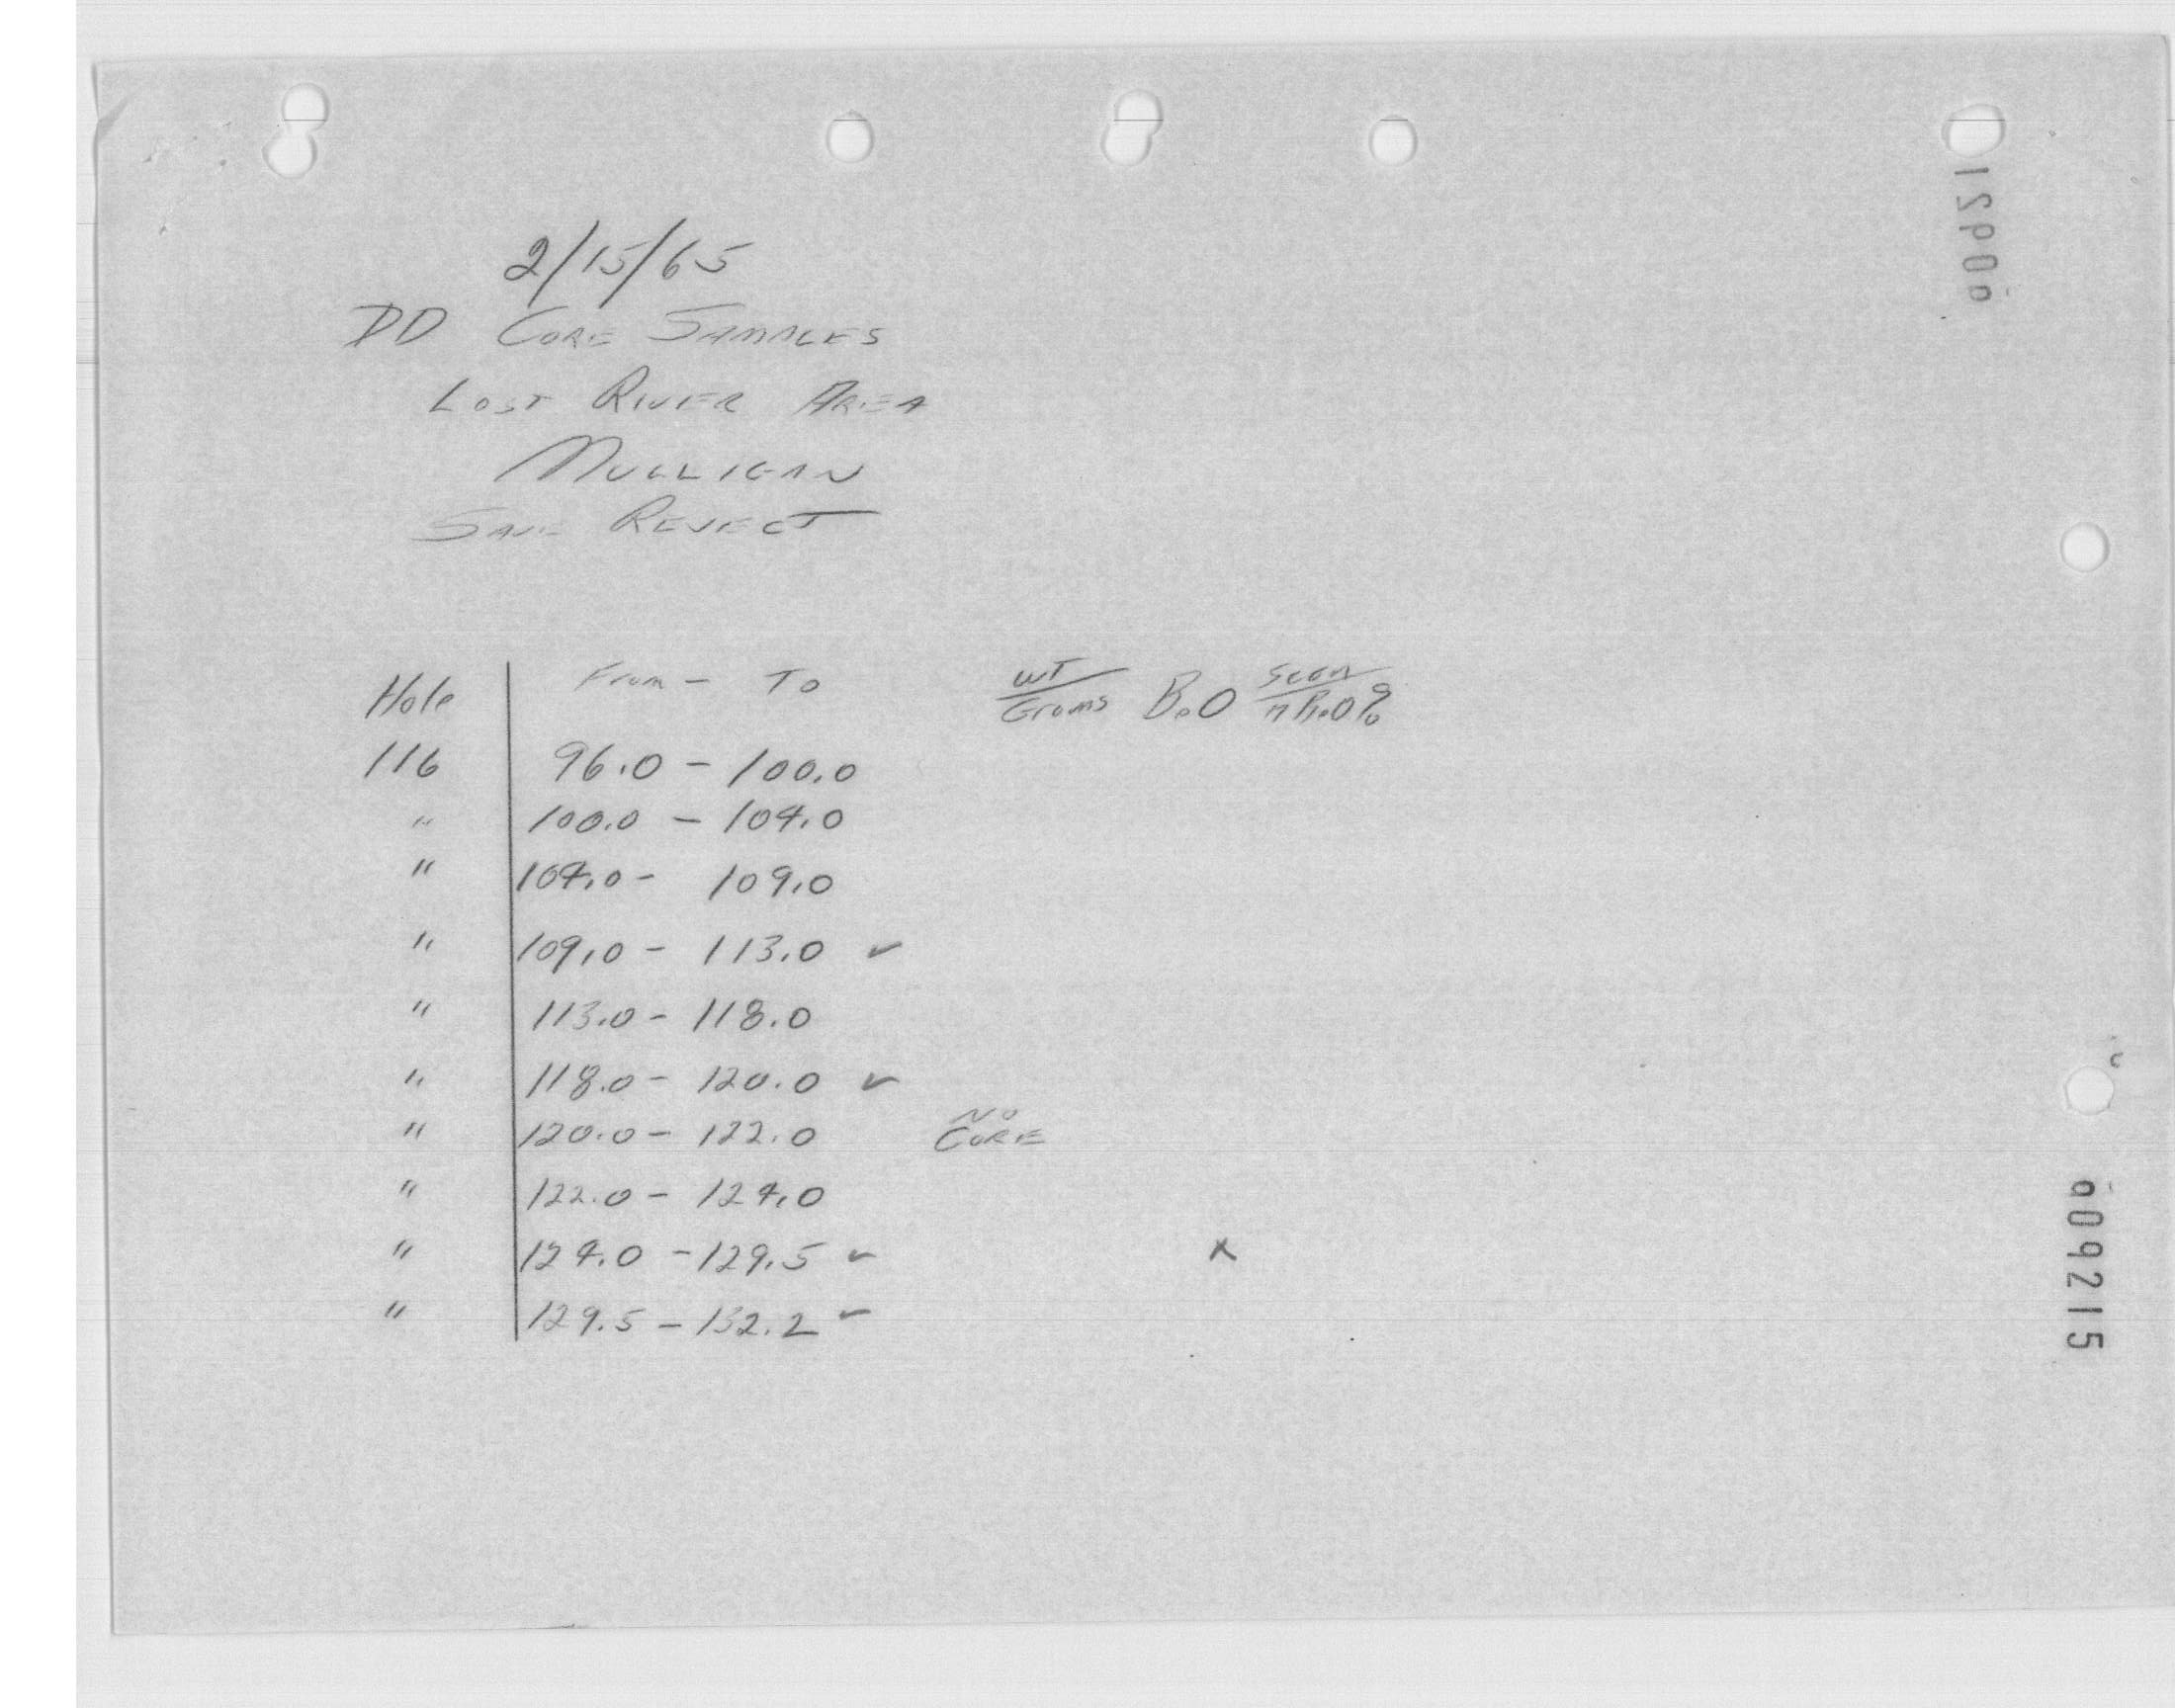 2/15/65
DD CORE SAMPLES
LOST RIVER AREA
MULLIGAN
SAVE REJECT
Hole From - To WT/Grams BeO
116 96.0 - 100.0
" 100.0 - 104.0
" 104.0 - 109.0
" 109.0 - 113.0 ✓
" 113.0 - 118.0
" 118.0 - 120.0 ✓
" 120.0 - 122.0 NO CORE
" 122.0 - 124.0
" 124.0 - 129.5 ✓ x
" 129.5 - 132.2 ✓
009215